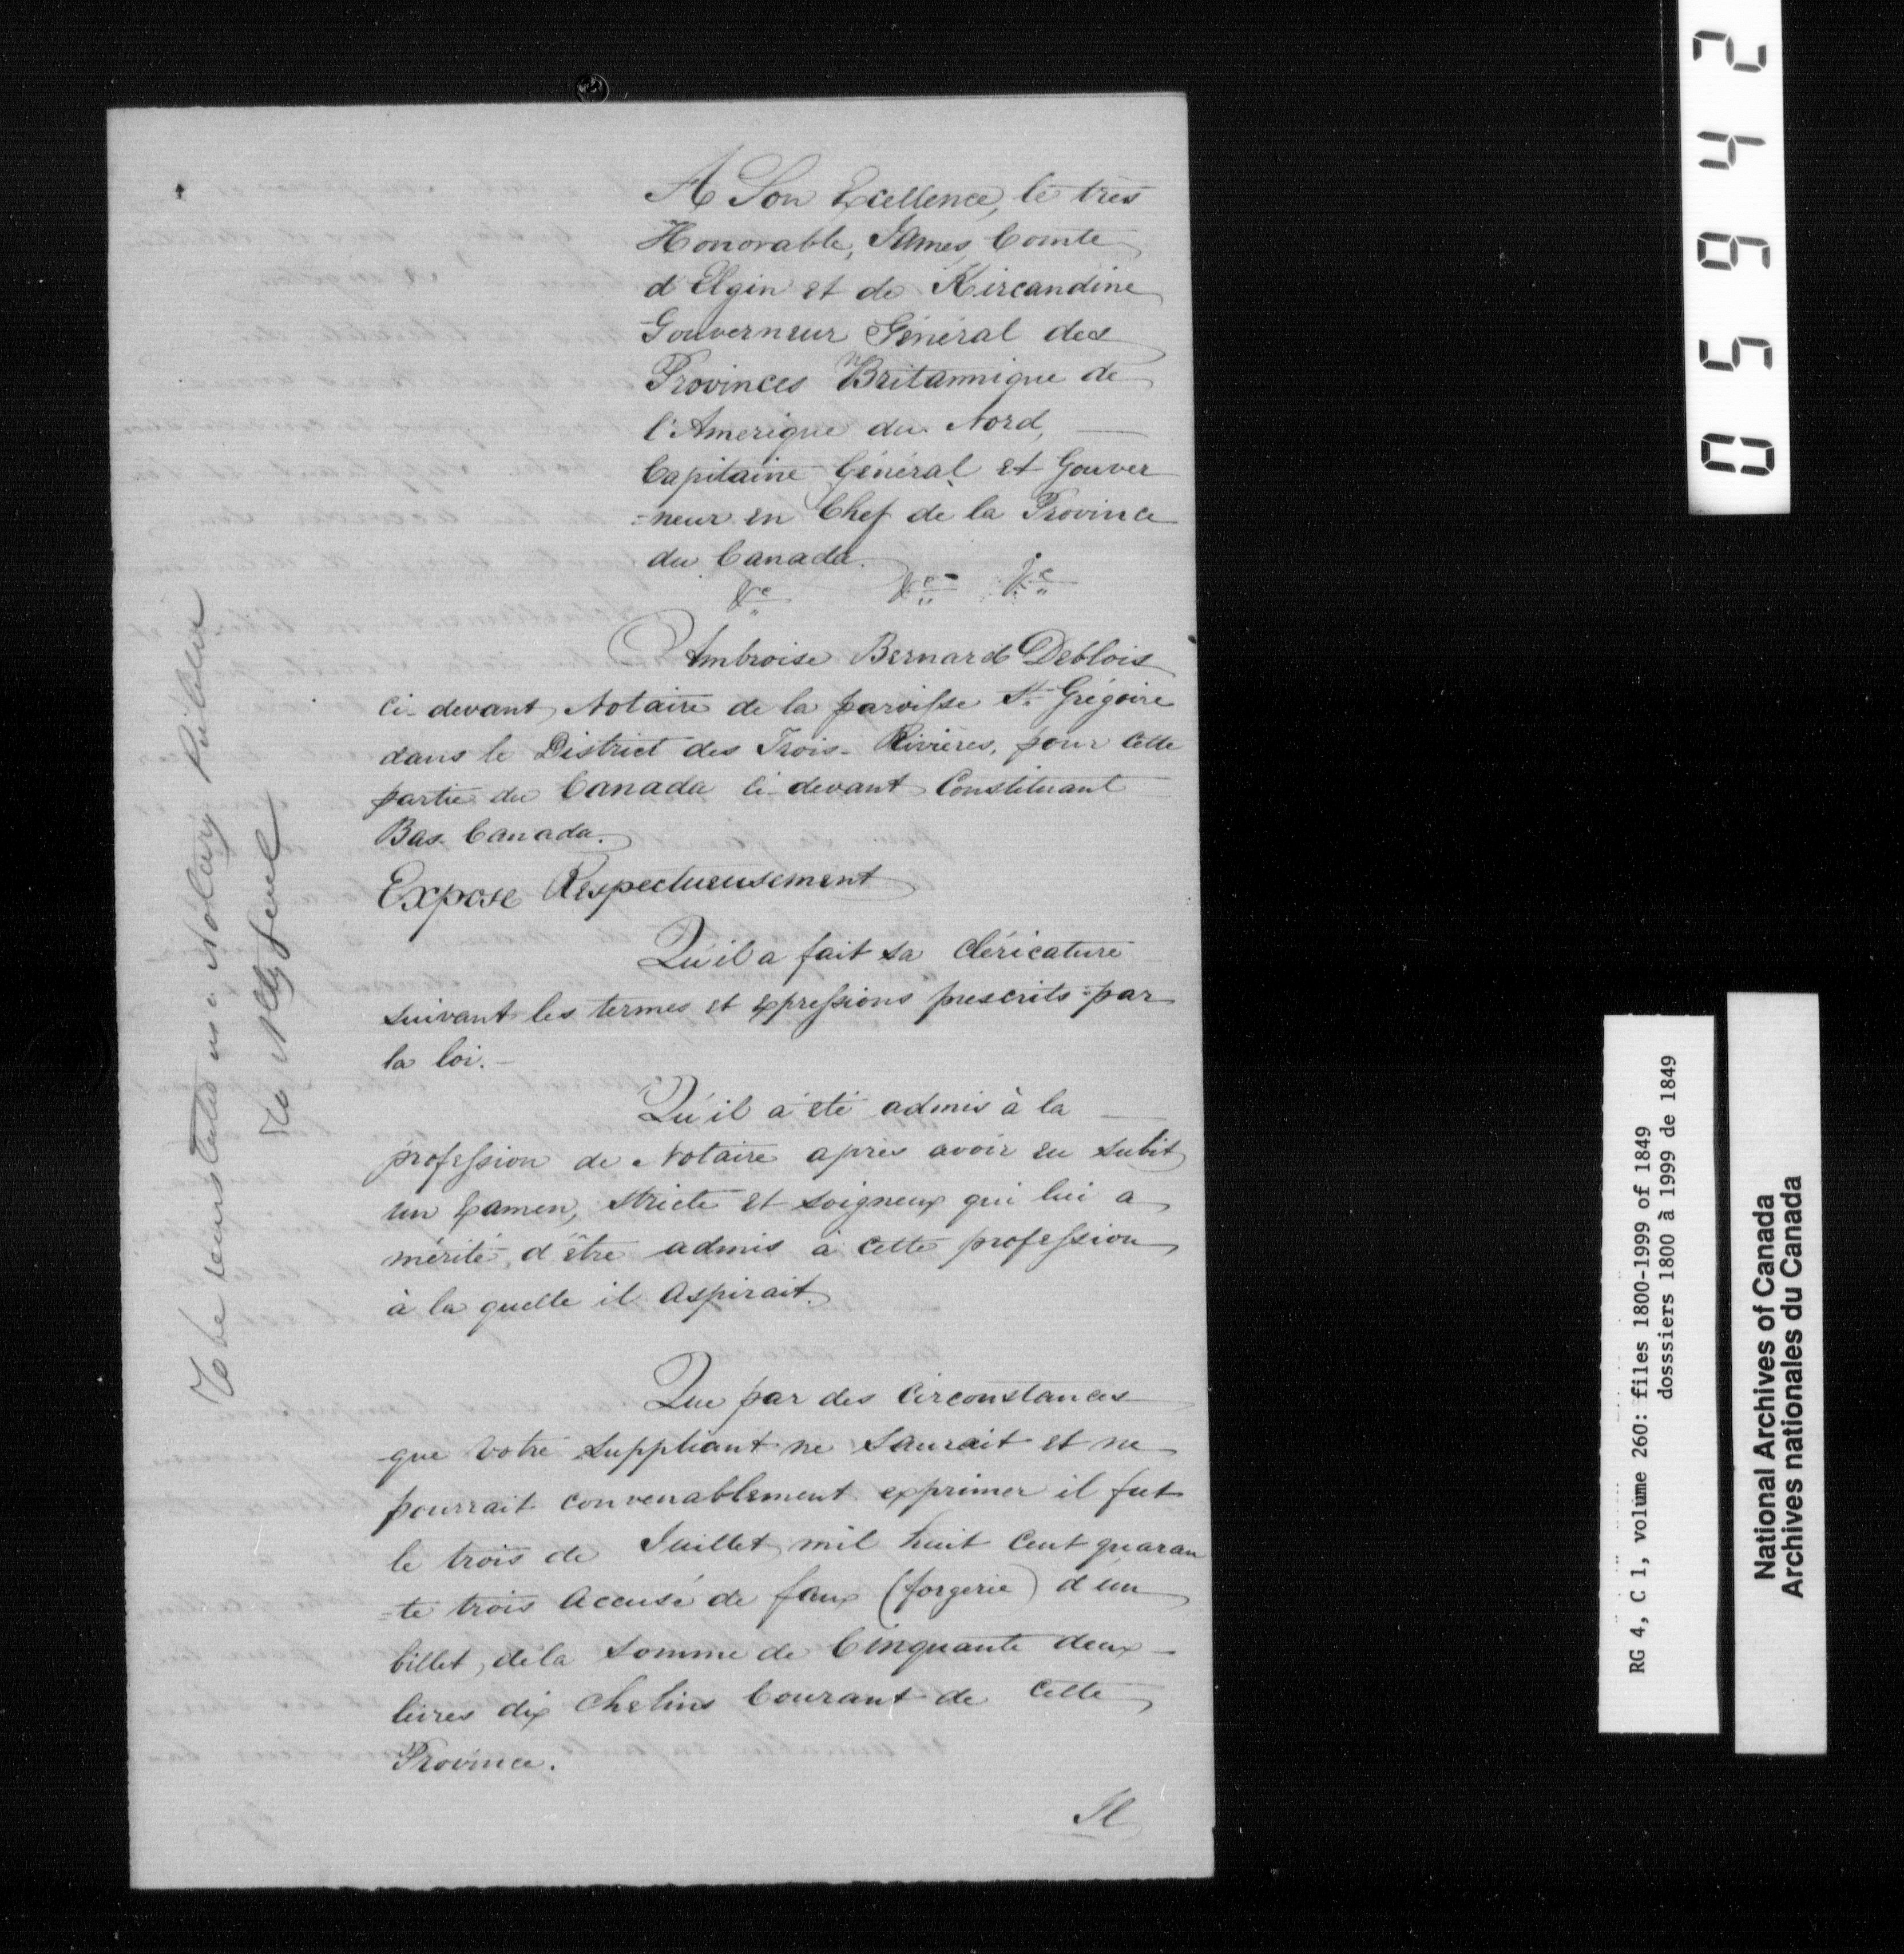 A Son Excellence, le très
Honorable, James, Comte
d'Elgin et de Kircandine
Gouverneur Général des
Provinces Britannique de
l'Amerique du Nord,
Capitaine Général et Gouver
=neur en Chef de la Province
du Canada.
&c &c &c
Ambroise Bernard Deblois
ci-devant Notaire de la paroisse St. Grégoire
dans le District des Trois-Rivières, pour cette
partie du Canada ci-devant Constituant
Bas-Canada.
Expose Respectueusement
Qu'il a fait sa cléricature
suivant les termes et expressions prescrits par
la loi.-
Qu'il a été admis à la
profession de Notaire après avoir eu subit
un Examen, stricte et soigneux qui lui a
mérité, d'être admis à cette profession
à la quelle il aspirait.
Que par des circonstances
que votre suppliant ne saurait et ne
pourrait convenablement exprimer il fut
le trois de Juillet mil huit cent quaran
=te trois accusé de faux (forgerie) d'un
billet, de la somme de Cinquante deux
livres dix chelins Courant de cette
Province.
Il
To be reinstated as a Notary Public
05942
RG 4, C 1, volume 260: files 1800-1999 of 1849
dosssiers 1800 à 1999 de 1849
National Archives of Canada
Archives nationales du Canada